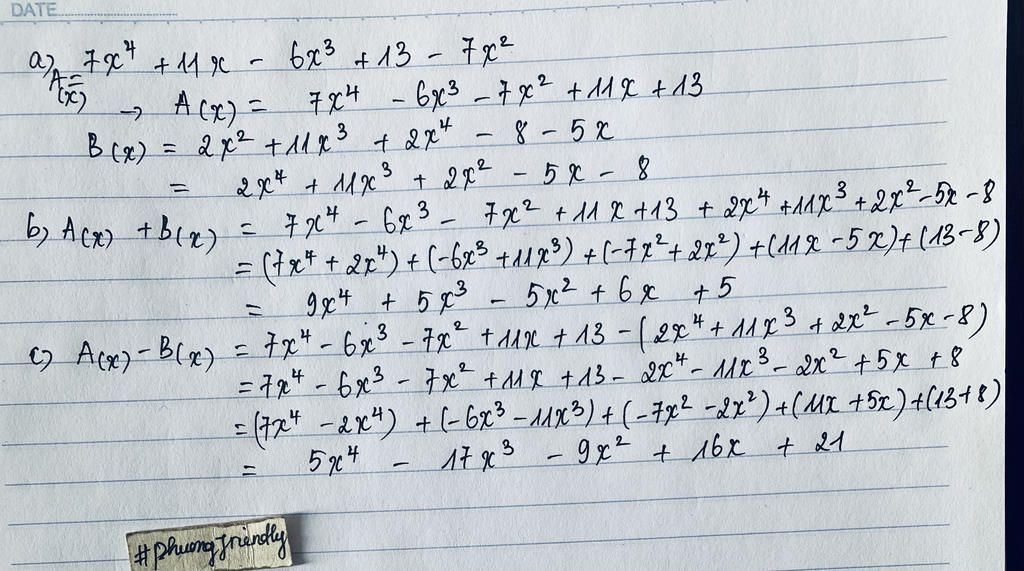 DATE
a) 7x⁴ + 11x - 6x³ + 13 - 7x²
A(x) =
→ A(x) = 7x⁴ - 6x³ - 7x² + 11x + 13
B(x) = 2x² + 11x³ + 2x⁴ - 8 - 5x
= 2x⁴ + 11x³ + 2x² - 5x - 8
b) A(x) + B(x) = 7x⁴ - 6x³ - 7x² + 11x + 13 + 2x⁴ + 11x³ + 2x² - 5x - 8
= (7x⁴ + 2x⁴) + (-6x³ + 11x³) + (-7x² + 2x²) + (11x - 5x) + (13 - 8)
= 9x⁴ + 5x³ - 5x² + 6x + 5
c) A(x) - B(x) = 7x⁴ - 6x³ - 7x² + 11x + 13 - (2x⁴ + 11x³ + 2x² - 5x - 8)
= 7x⁴ - 6x³ - 7x² + 11x + 13 - 2x⁴ - 11x³ - 2x² + 5x + 8
= (7x⁴ - 2x⁴) + (-6x³ - 11x³) + (-7x² - 2x²) + (11x + 5x) + (13 + 8)
= 5x⁴ - 17x³ - 9x² + 16x + 21
#phuongfriendly